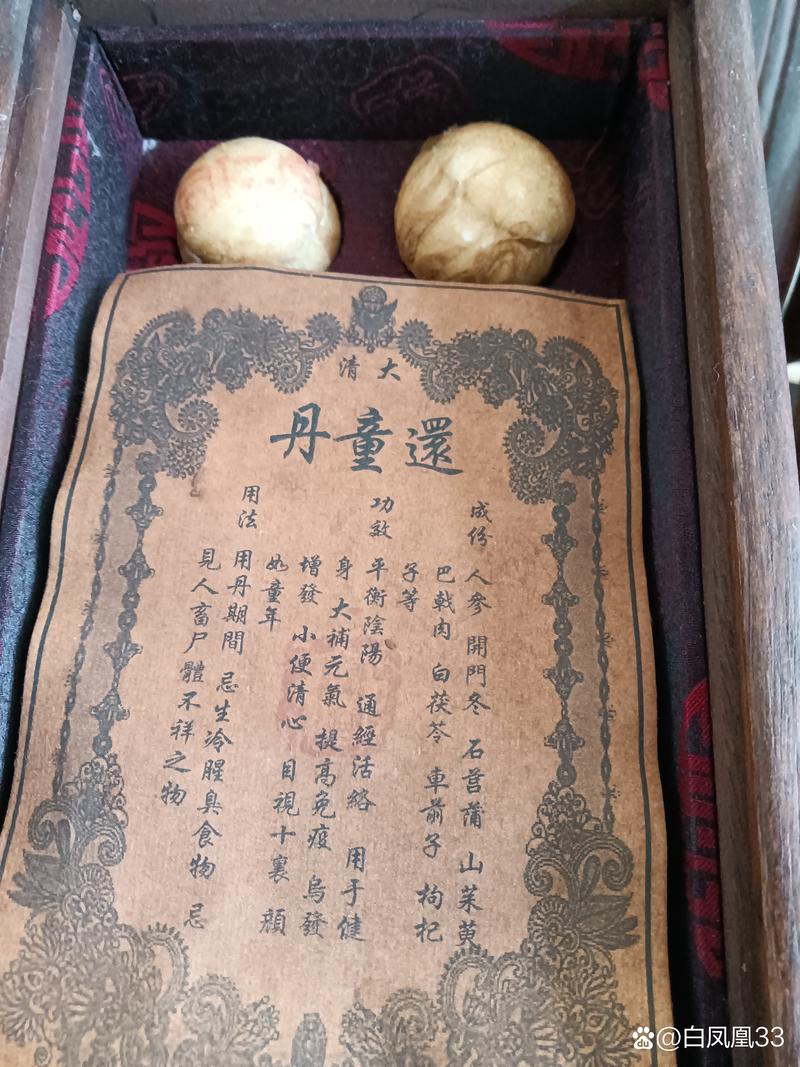 大清
還童丹
成份 人參 開門冬 石菖蒲 山茱萸
巴戟肉 白茯苓 車前子 枸杞
子等
功效 平衡陰陽 通經活絡 用于健
身 大補元氣 提高免疫 烏發
增發 小便清心 目視十裏 顏
如童年
用法 用丹期間 忌生冷腥臭食物 忌
見人畜尸體不祥之物
@白凤凰33